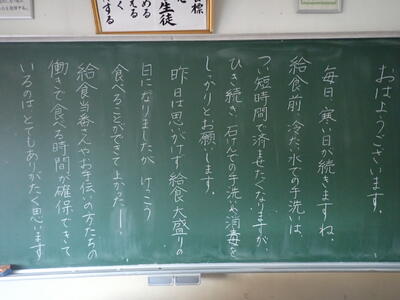 おはようございます。
毎日、寒い日が続きますね。
給食前、冷たい水での手洗いは、
つい短時間で済ませたくなりますが、
ひき続き、石けんでの手洗いや消毒を
しっかりとお願いします。
昨日は思いがけず給食大盛りの
日になりましたが、けっこう
食べることができて上かったー！
給食当番さんやお手伝いの方たちの
働きで食べる時間が確保できて
いるのはとてもありがたく思います
標
生徒
める
える
く
する